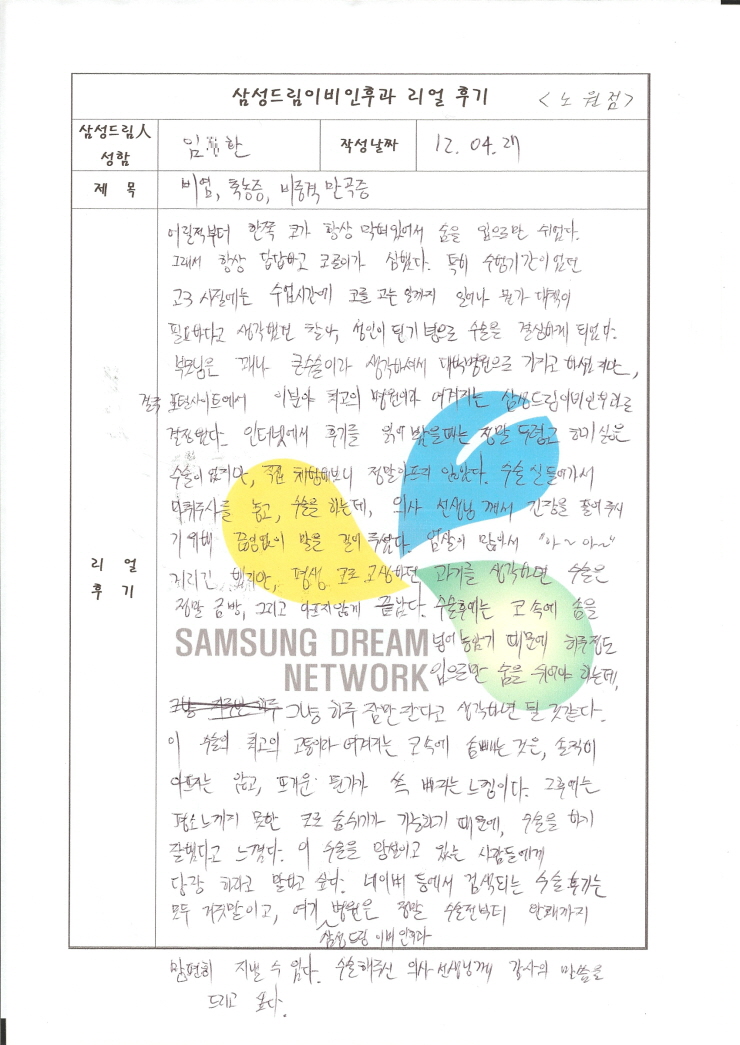 삼성드림이비인후과 리얼 후기 <노원점>
삼성드림人
성함
임 한
작성날짜
12. 04. 27
제 목
비염, 축농증, 비중격 만곡증
리 얼
후 기
어릴적부터 한쪽 코가 항상 막혀있어서 숨을 입으로만 쉬었다.
그래서 항상 답답하고 코골이가 심했다. 특히 수험기간이었던
고3 시절에는 수업시간에 코를 고는 일까지 일어나 뭔가 대책이
필요하다고 생각했던 찰나, 성인이 된기념으로 수술을 결심하게 되었다.
부모님은 꽤나 큰수술이라 생각하셔서 대학병원으로 가자고 하셨지만,
결국 포털사이트에서 이분야 최고의 병원이라 여겨지는 삼성드림이비인후과로
결정했다. 인터넷에서 후기를 읽어 봤을때는 정말 두렵고 하기싫은
수술이었지만, 직접 체험해보니 정말아프지 않았다. 수술실들어가서
마취주사를 놓고, 수술을 하는데, 의사 선생님 께서 긴장을 풀어주시
기위해 끊임없이 말을 걸어주셨다. 엄살이 많아서 "아~ 아~"
거리긴 했지만, 평생 코로 고생하던 과거를 생각하면 수술은
정말 금방, 그리고 아프지않게 끝났다. 수술후에는 코 속에 솜을
SAMSUNG DREAM
NETWORK
넣어놓았기 때문에 하루정도
입으로만 숨을 쉬어야 하는데,
그냥 하루 잠만 잔다고 생각하면 될 것같다.
이 수술의 최고의 고통이라 여겨지는 코속에 솜빼는 것은, 솔직히
아프지는 않고, 뜨거운 뭔가가 쏙 빠지는 느낌이다. 그후에는
평소느끼지 못한 코로 숨쉬기가 가능하기 때문에, 수술을 하기
잘했다고 느꼈다. 이 수술을 망설이고 있는 사람들에게
당장 하라고 말하고 싶다. 네이버 등에서 검색되는 수술후기는
모두 거짓말이고, 여기 병원은 정말 수술전부터 완쾌까지
삼성드림 이비인후과
맘편히 지낼 수 있다. 수술해주신 의사선생님께 감사의 말씀을
드리고 싶다.